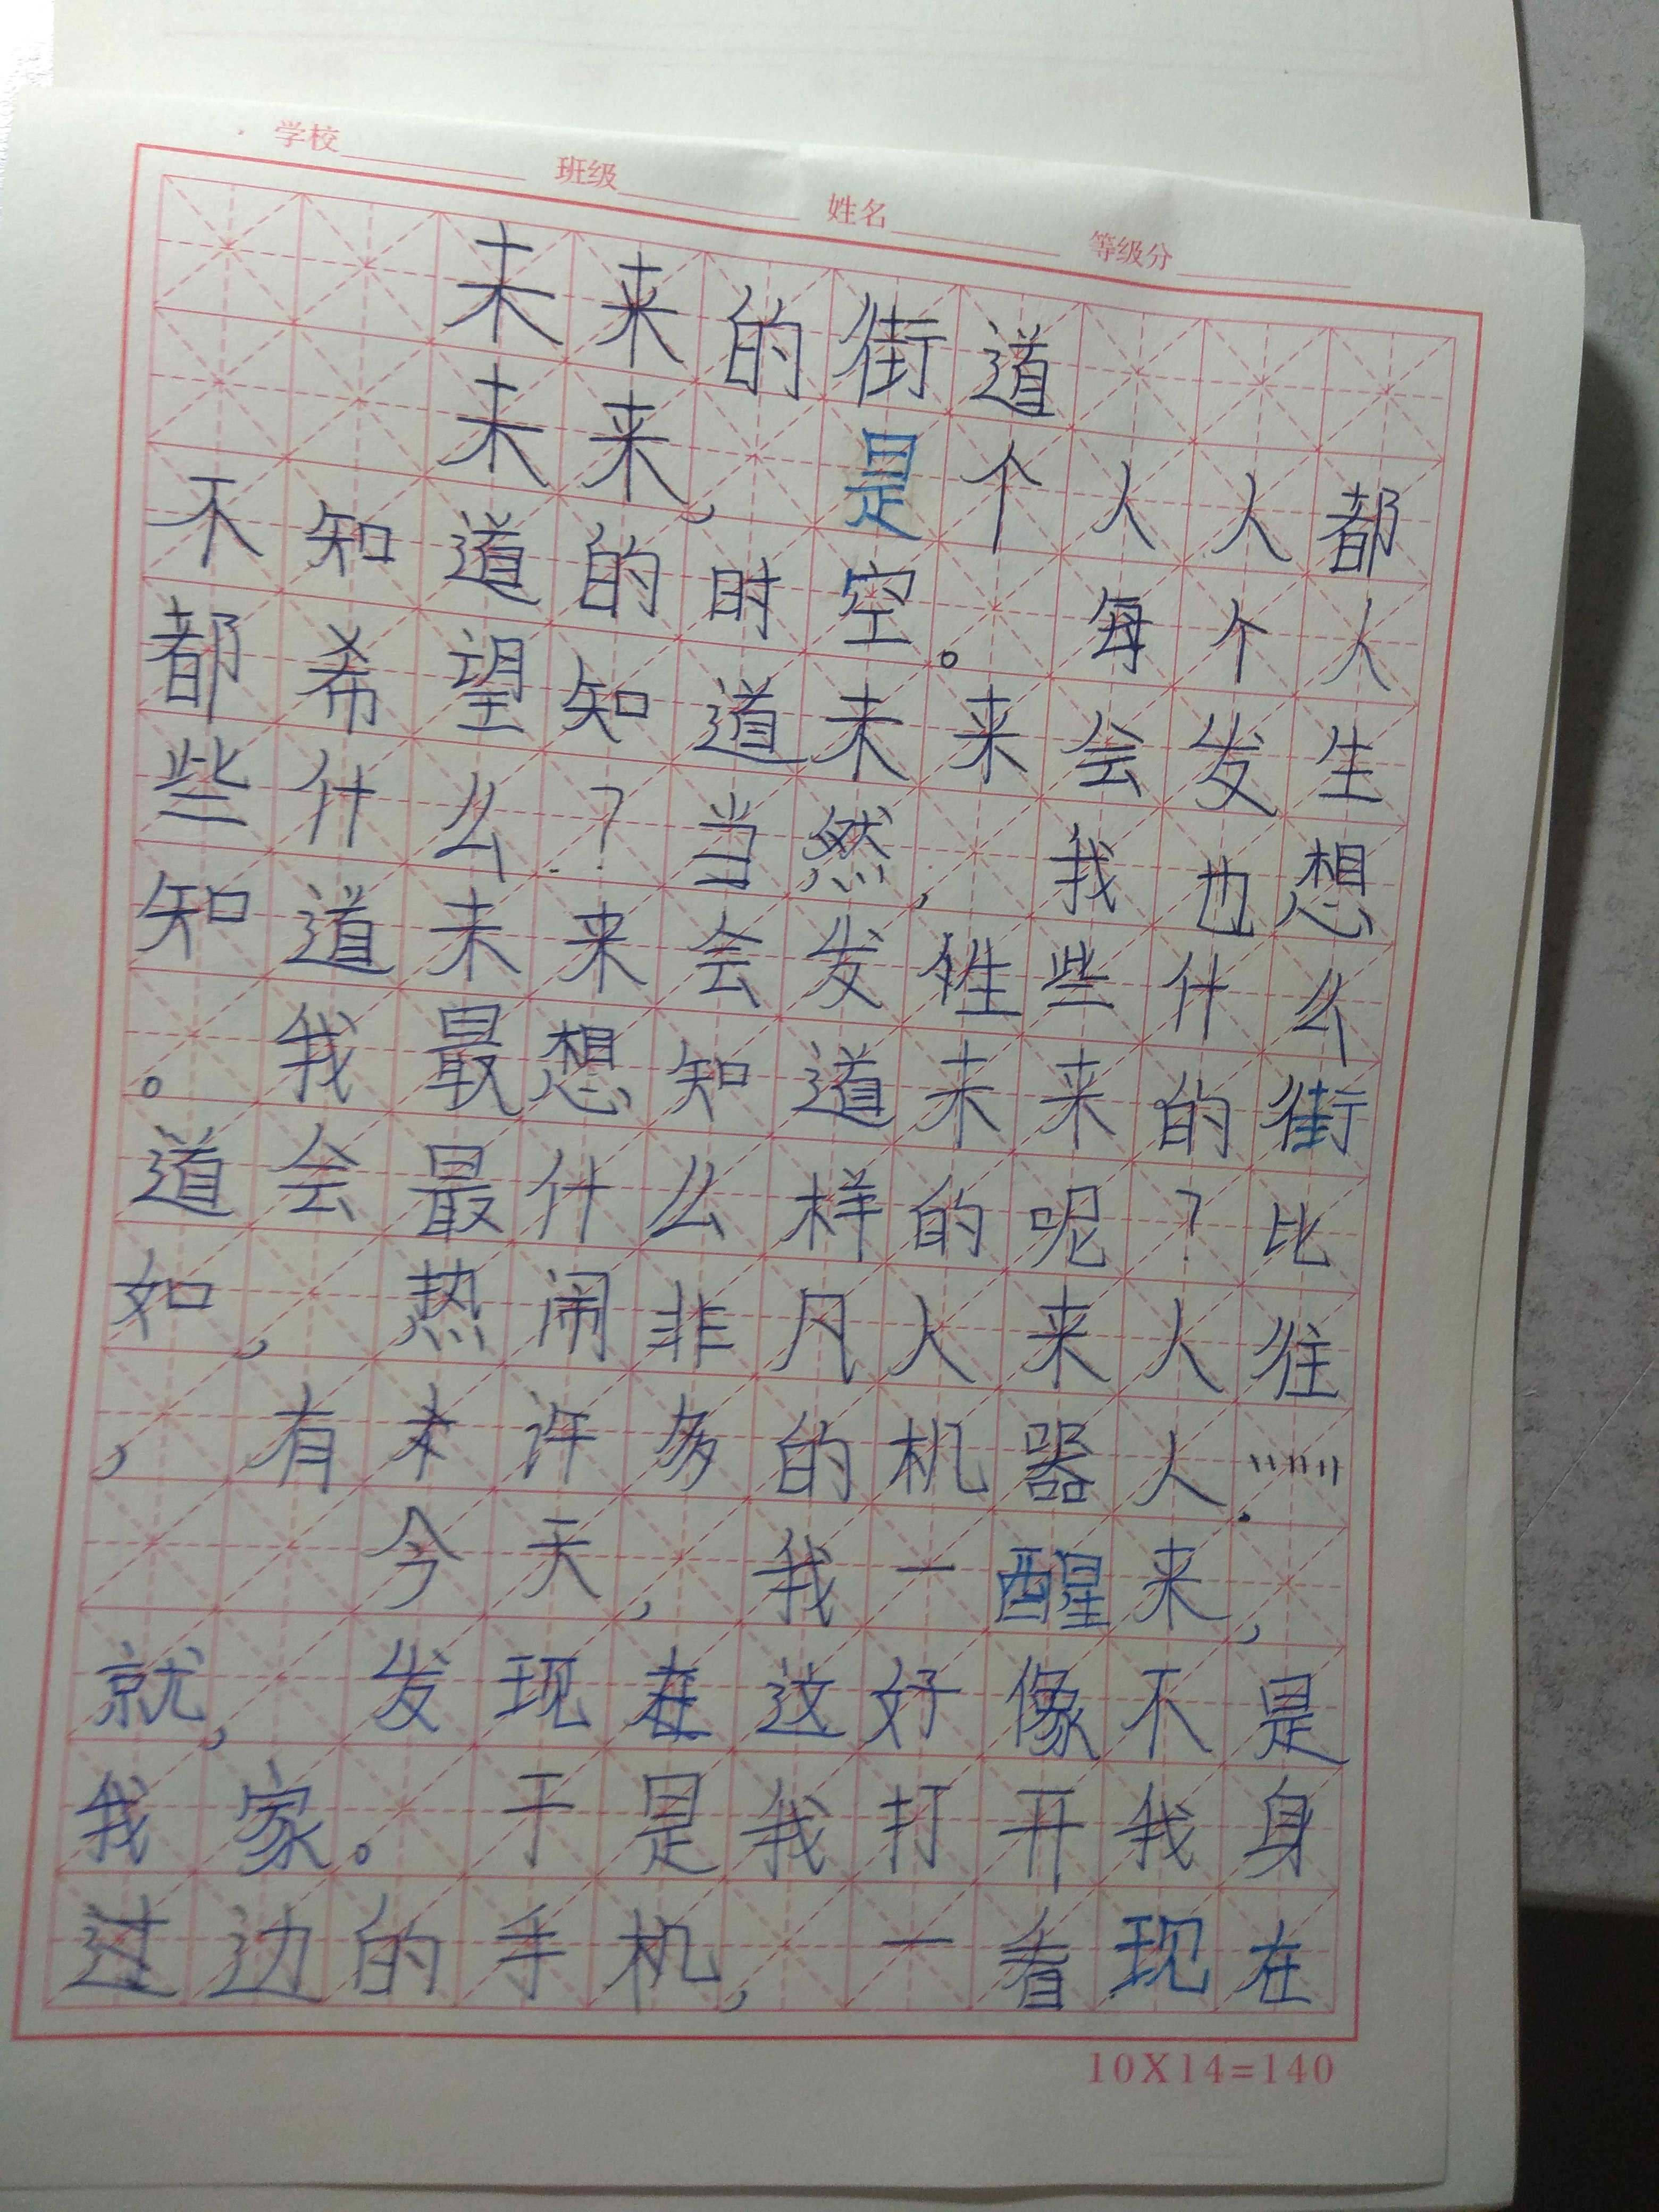 学校 班级 姓名 等级分
未来的街道
未来，是个人人都
不知道的时空。每个人
都希望知道未来会发生
些什么？当然，我也想
知道未来会发性些什么
。我最想知道未来的街
道会最什么样的呢？比
如，热闹非凡人来人往
，有许多的机器人……
今天，我一醒来，
就，发现在这好像不是
我家。于是我打开我身
过边的手机，一看现在
10X14=140